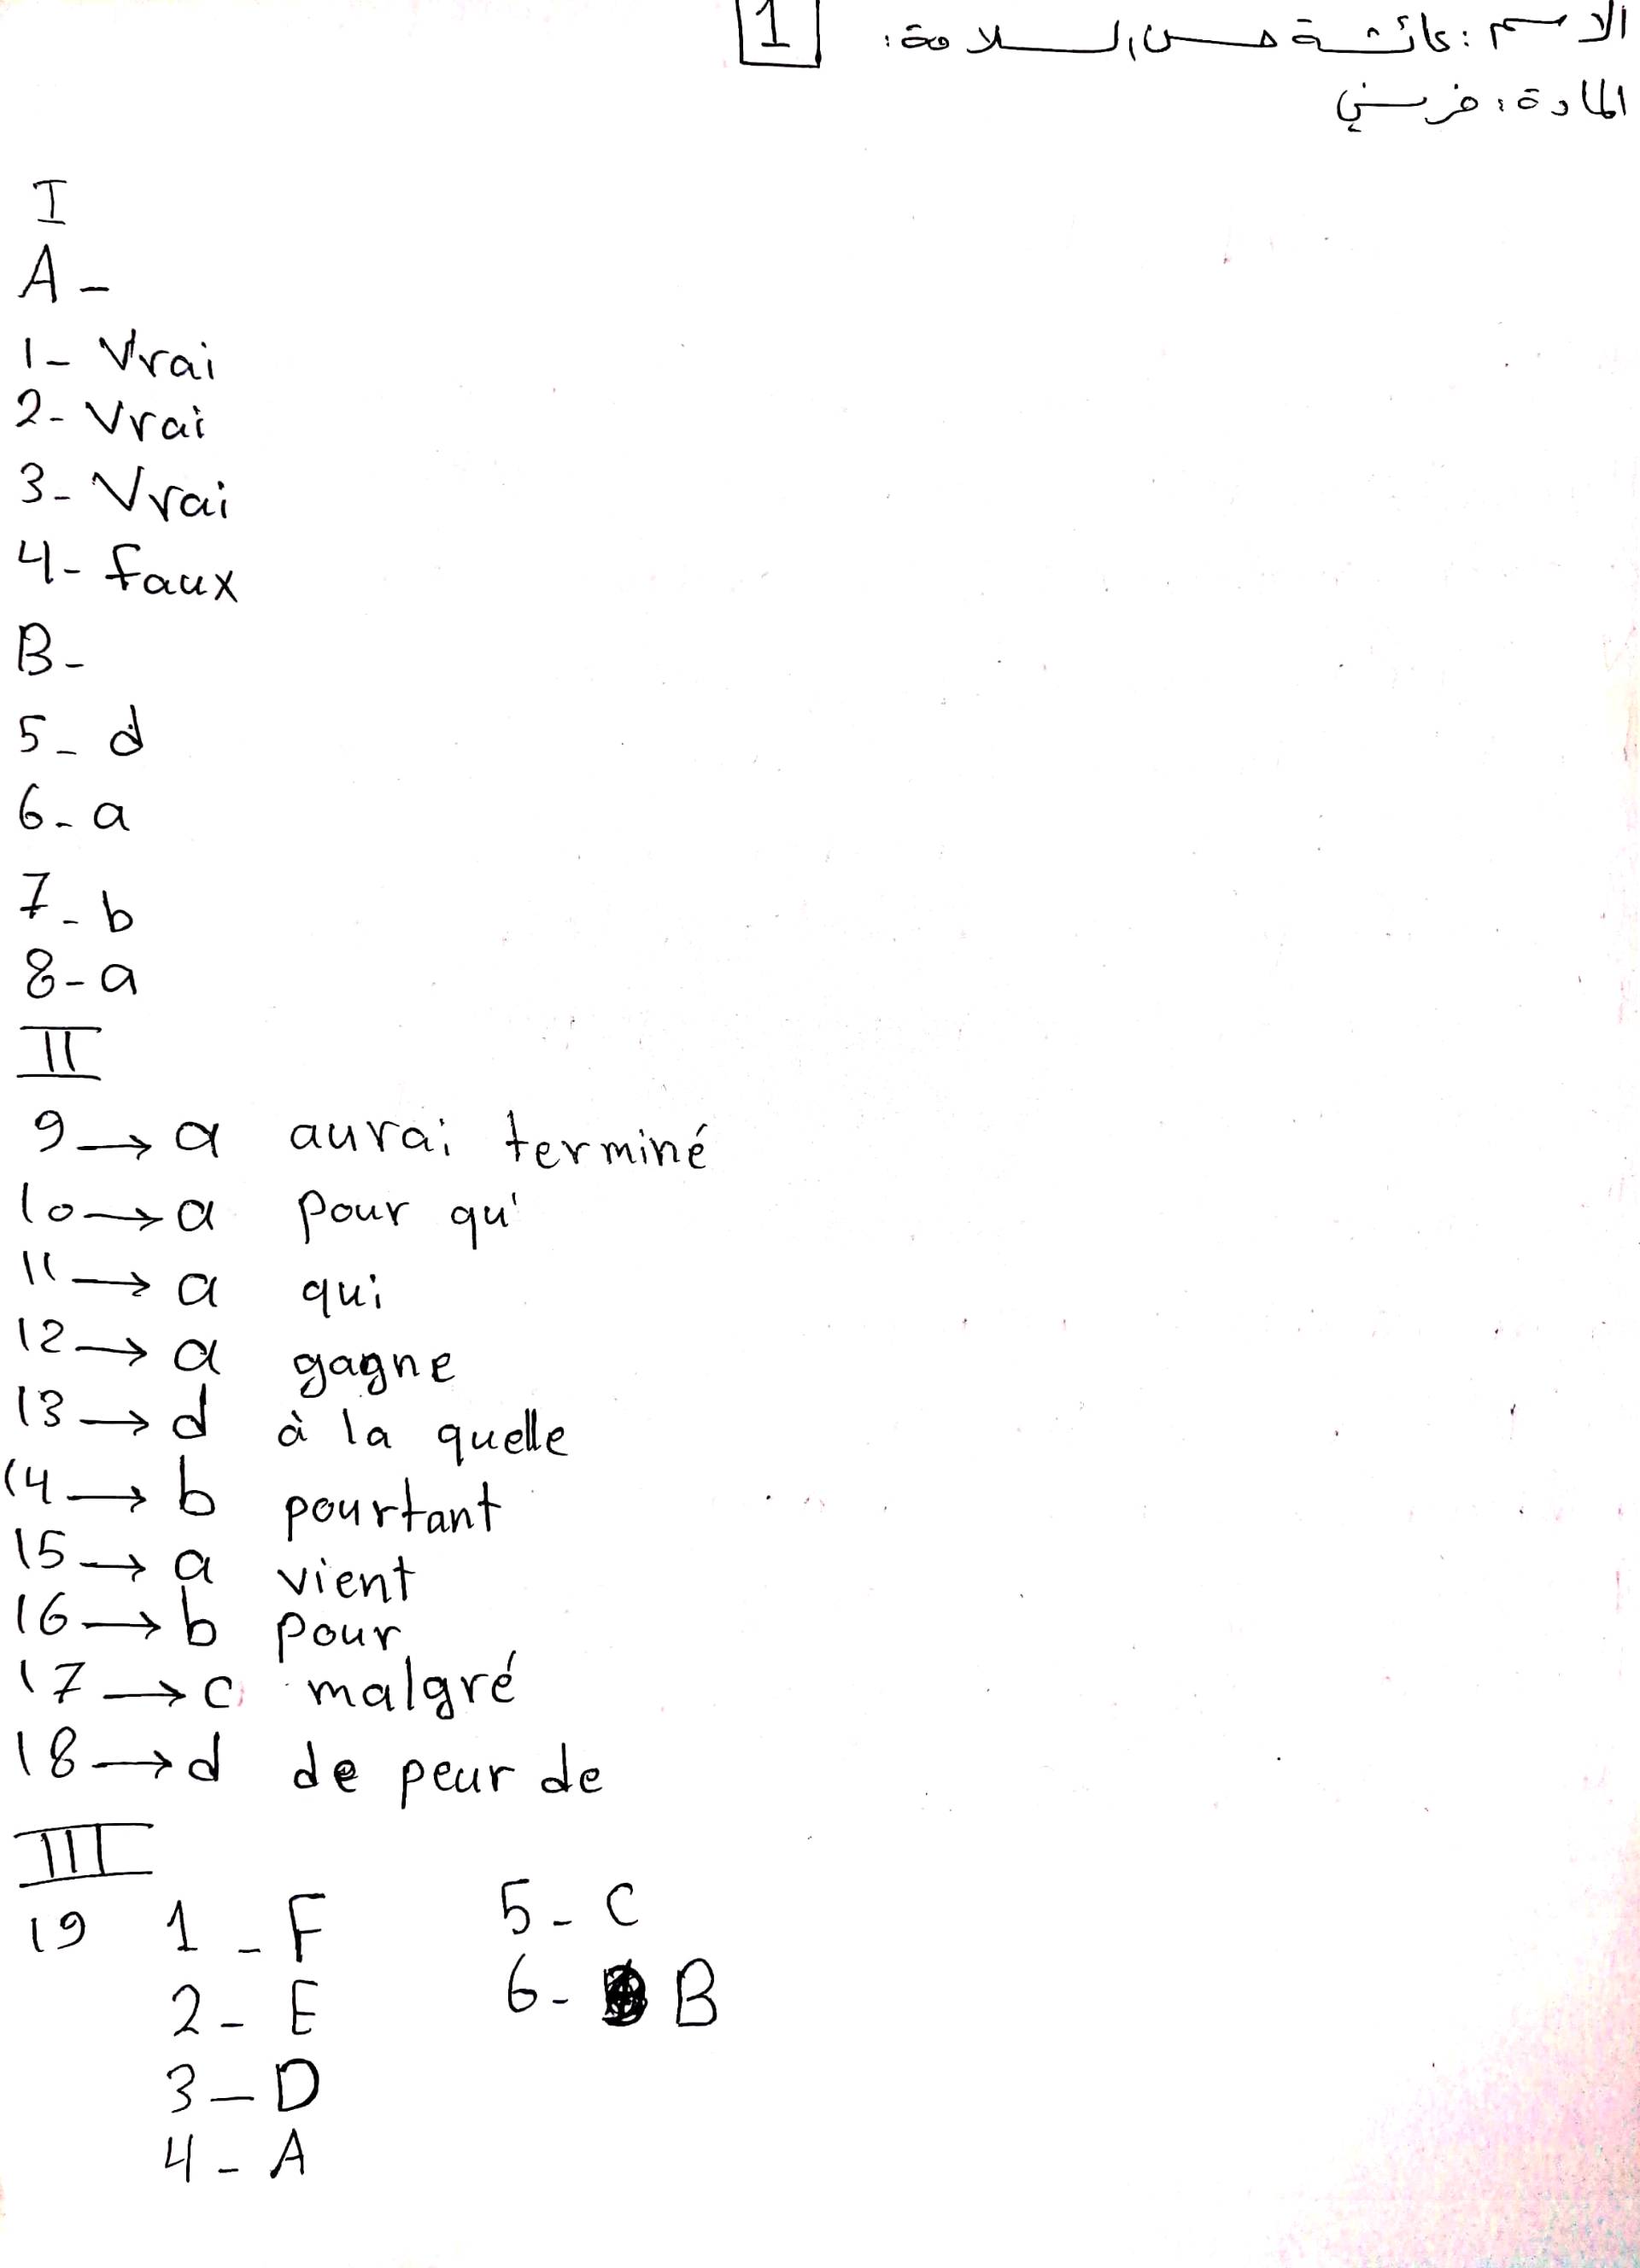 الاسم: عائشة حسن السلامة:
1
المادة: فرنسي
I
A-
1- Vrai
2- Vrai
3- Vrai
4- faux
B-
5- d
6- a
7- b
8- a
II
9→a aurai terminé
10→a pour qu'
11→a qui
12→a gagne
13→d à la quelle
14→b pourtant
15→a vient
16→b pour
17→c malgré
18→d de peur de
III
19 1-F 5-C
2-E 6-B
3-D
4-A